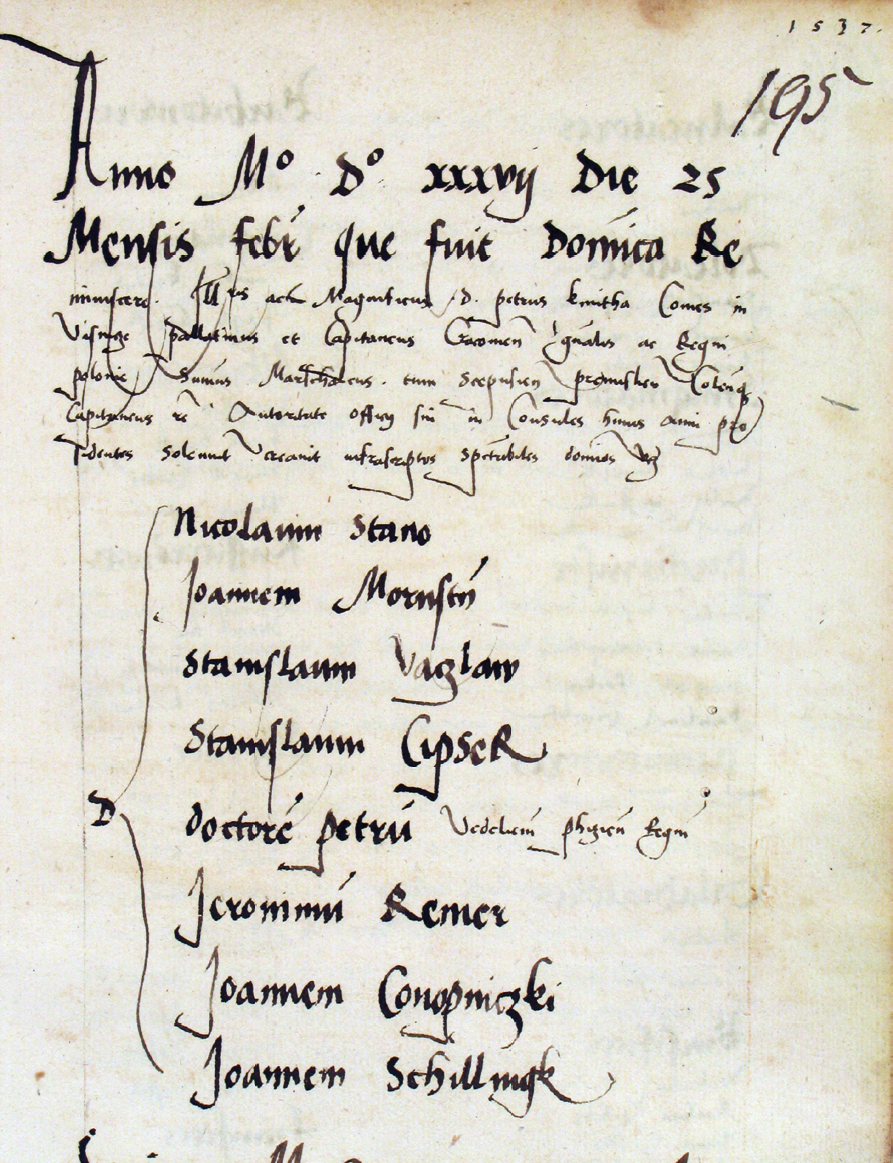 1537.
195
Anno Mº Dº xxxvij Die 25
Mensis febr que fuit Domica Re
miniscere. Illris ac Magnificus D. petrus kmitha Comes in
Visnicze pallatinus et Capitaneus Cracovien gnalis ac Regni
polonie Summus Marschalcus. tum Scepusien premislien Colen
Capitaneus Autoritate officij sui in Consules huius anni pre
sidentes solemnit creavit infrascriptos spectabiles dominos
Nicolaum Stano
Joannem Mornstin
Stanislaum Vaczlaw
Stanislaum CipseR
D doctore petru Vedeliciu phizicu Regiu
Jeronimu Remer
Joannem Conopniczki
Joannem Schillingk